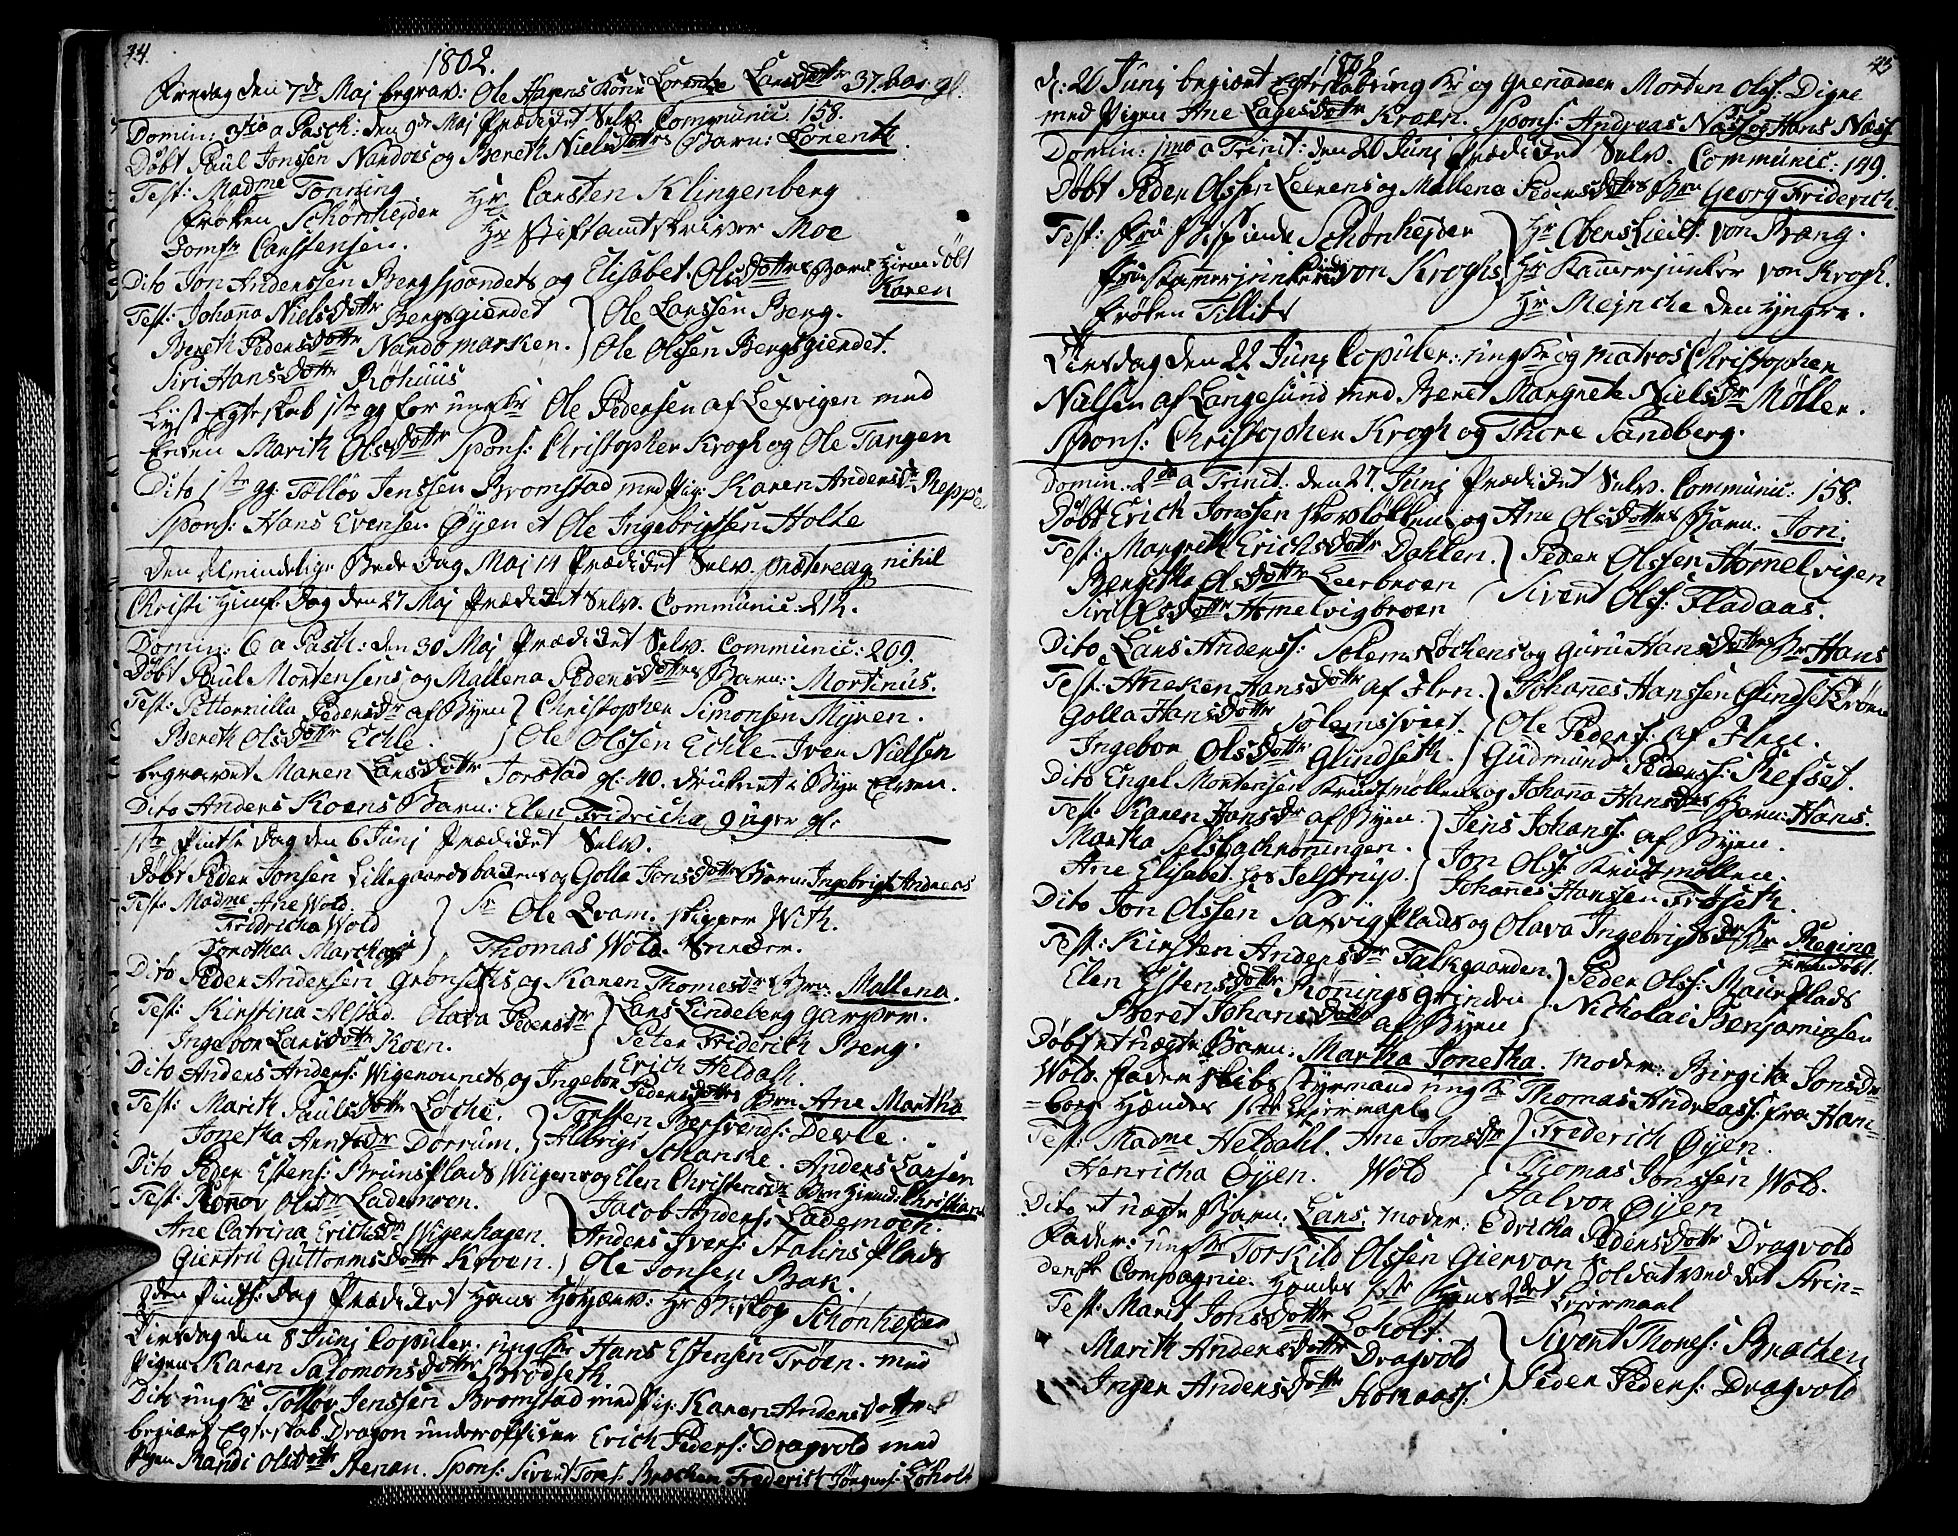 44.
1802.
Fredag den 7de Maj begrav: Ole Hagens Kone Lorentze Larsdottr 37 Aar gl.
Domin: 3tia a Pasch: den 9de Maj Prædicket Selv. Communic: 158.
Døbt Paul Jonssen Nardoes og Bereth Nielsdottrs Barn: Lorentz.
Test: Madme Tonning Hr Carsten Klingenberg
Frøken Schønheyder Hr Stiftamtskriver Moe
Jomfr Carstensen.
Dito Jon Anderssen Bergspandets og Elisabet Olsdottrs Barn Hiemdøbt
Karen
Test: Johana Nielsdottr Bergsgierdet Ole Larssen Berg.
Bereth Pedersdottr Nardomarken. Ole Olssen Bergsgierdet.
Siri Hansdottr Røhuus
Lyst Egteskab 1te gg for ungkr Ole Pedersen af Lexvigen med
Enken Marith Olsdottr Spons: Christopher Krogh og Ole Tangen
Dito 1te gg: Tølløv Jenssen Bromstad med Pig: Karen Andersdr Reppe
Spons: Hans Evensen Øyen et Ole Ingebrigtsen Holte
Den Almindelige Bede Dag Maj 14 Prædicket Selv. prætereaq nihil
Christi Himf: Dag den 27 Maj Prædicket Selv. Communic: 212.
Domin: 6 a Pasch: den 30 Maj Prædicket Selv. Communic: 209.
Døbt Paul Mortensens og Mallena Pedersdottrs Barn: Mortinus.
Test: Petternilla Pedersdr af Byen Christopher Simonsen Myren.
Bereth Olsdottr Echle. Ole Olssen Echle. Iver Nielsen
begravet Maren Larsdottr Torstad gl: 40. druknet i Bye Elven.
Dito Anders Koens Barn: Elen Fridricha 9 uger gl:
1te Pintse Dag den 6 Junj Prædicket Selv.
Døbt Peder Jonsen Lillegaardsbakens og Golla Jonsdottrs Barn: Ingebrigt Andreas
Test: Madme Ane Wold. Sr Ole Qvam. Skipper With.
Fridricha Wold Thomas Wold.
Dorothea
Dito Peder Andersen Grønsets og Karen Thomesdrs Brn: Mallena.
Test: Kirstina Alstad. Olava Pedersdr Lars Lindeberg Garver.
Ingebor Larsdottr Koen. Peter Friderich Berg.
Erich Heldahl.
Dito Anders Anders: og Ingebor Pedersdottrs Brn Ane Martha
Test: Marith Paulsdottr Løche. Torsten Devle.
Jonetha Arntsdr Dorrum. Schanke. Anders Larsen
Dito Peder Estens: Bruns Plads Wiigens og Elen Christensdrs Brn Hiemd: Christian
Test: Olsdr Lademoen. Jacob Anders: Lademoen.
Ane Catrina Erichsdr Wigenhagen. Anders Ivers: Stalins Plads
Giertru Guttormsdottr Kroen. Ole Jonsen Bak.
2den Pints: Dag Prædicket Hans Højærv: Hr Biskop Schønheyder
Tirsdag den 8 Junj Copuler: ungkr Hans Estensen Trøen. med
Pigen Karen Salomonsdottr Brodseth
Dito ungkr Tølløv Jenssen Bromstad med Pig: Karen Andersdottr
begiært Egteskab Dragon underofficer Erich Peders: Dragvold med
Pigen Randi Olsdottr Stenan. Spons: Sivert Tores: Brachen Frederich Loholt
45
1802
d: 20 Junj begiært Egteskab ungkr og Grenadeer Morten Ols: Digre
med Pigen Ane Lagesdottr Kroen. Spons: Andreas Næss og Hans Næss
Domin: 1ma a Trinit: den 20 Junj Prædicket Selv. Communic: 149.
Døbt Peder Olssen Leerens og Mallena Pedersdottrs Brn Georg Friderich.
Test: Frue Bispinde Schønheyder Hr Obers Lieut: von
Frue Kamerjunkerinde von Kroghs Hr Kamerjunker von Krogh.
Frøken Tillish Hr Mejncke den yngre.
Tirsdag den 22 Junj Copuler: ungkr og Matros Christopher
Nielsen af Langesund med Beret Margrete Nielsdr Møller.
Spons: Christopher Krogh og Thore Sandberg.
Domin: 2da a Trinit: den 27 Junj Prædicket Selv. Communic: 158.
Døbt Erich Jonssen Skovsløkkens og Ane Olsdottrs Barn: Joni.
Test: Margreth Erichsdottr Dahlen. Peder Olssen Homelvigen
Bergitha Olsdottr Leerbroen Sivert Ols: Fladaas.
Siri Olsdottr Homelvigbroen
Dito Lars Anderss: Solems Løchens og Guru Hansdottrs Br Hans
Test: Aneken Hansdottr af Flen. Johanes Hanssen Glindset Krøen
Golla Hansdottr Solemssveet. Ole Peders: af Flen.
Ingebor Olsdottr Glindseth. Gudmund Peders: Refset.
Dito Engel Mortensen Krudtmøllens og Johana Hansdotrs Barn: Hans.
Test: Karen Hansdr af Byen. Jens Johans: af Byen.
Martha Selsbachrøningen. Jon Ols: Krudtmøllen.
Ane Elisabet hos Selstrup. Johanes Hanssen Frøseth.
Dito Jon Olssen Saxvig Plads og Olava Ingebrigtsdrs Br Regina
Hiemedøbt.
Test: Kirsten Andersdr Falkgaarden. Peder Ols: Maur Plads
Elen Estensdottr Rønningsgrinden Nicholai Benjaminsen
Beret Johansdottr af Byen
Døbt et uægte Barn: Martha Jonetha. Moder: Birgita Jonsdr
Wold. Fader Skibs Styrmand ungkr Thomas Andreass: fra Ham-
-borg Hendes 1ste Leiermaal
Test: Madme Heldahl. Ane Jonsdr Friderich Øyen.
Henricha Øyen. Wold Thomas Jonssen Wold.
Halvor Øyen
Dito et uægte Barn: Lars. Moder: Edricha Pedersdottr Dragvold
Fader: ungkr Torkild Olssen Giervan Soldat ved det Strin-
denske Compagnie. Hendes 1ste Hans 2det Leiermaal
Test: Marit Jonsdottr Loholt Sivert Thores: Brachen
Marith Andersdottr Dragvold Peder Peders: Dragvold
Inger Andersdottr Stokaas: